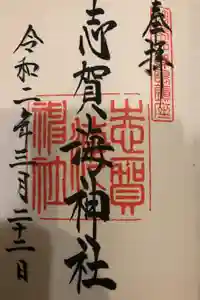 奉拝
志賀海神社
令和二年三月二十二日
志賀海神社